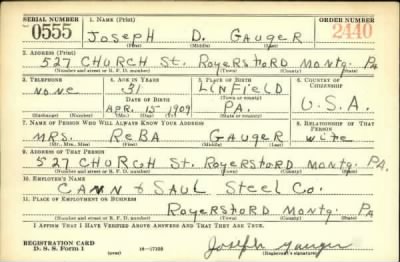 SERIAL NUMBER 1. NAME (Print) ORDER NUMBER
0555 JOSEPH D. GAUGER 2440
(First) (Middle) (Last)
2. ADDRESS (Print)
527 CHURCH St. ROYERSFORD MONTG. PA
(Number and street or R. F. D. number) (Town) (County) (State)
3. TELEPHONE 4. AGE IN YEARS 5. PLACE OF BIRTH 6. COUNTRY OF CITIZENSHIP
NONE 31 LINFIELD
DATE OF BIRTH (Town or county)
APR. 15 1909 PA. U.S.A.
(Exchange) (Number) (Mo.) (Day) (Yr.) (State or country)
7. NAME OF PERSON WHO WILL ALWAYS KNOW YOUR ADDRESS 8. RELATIONSHIP OF THAT PERSON
MRS. REBA GAUGER WIFE
(Mr., Mrs., Miss) (First) (Middle) (Last)
9. ADDRESS OF THAT PERSON
527 CHURCH St. ROYERSFORD MONTG. PA.
(Number and street or R. F. D. number) (Town) (County) (State)
10. EMPLOYER'S NAME
CANN & SAUL STEEL CO.
11. PLACE OF EMPLOYMENT OR BUSINESS
ROYERSFORD MONTG. PA
(Number and street or R. F. D. number) (Town) (County) (State)
I AFFIRM THAT I HAVE VERIFIED ABOVE ANSWERS AND THAT THEY ARE TRUE.
REGISTRATION CARD
D. S. S. Form 1 (over) 16—17105 Joseph Gauger
(Registrant's signature)